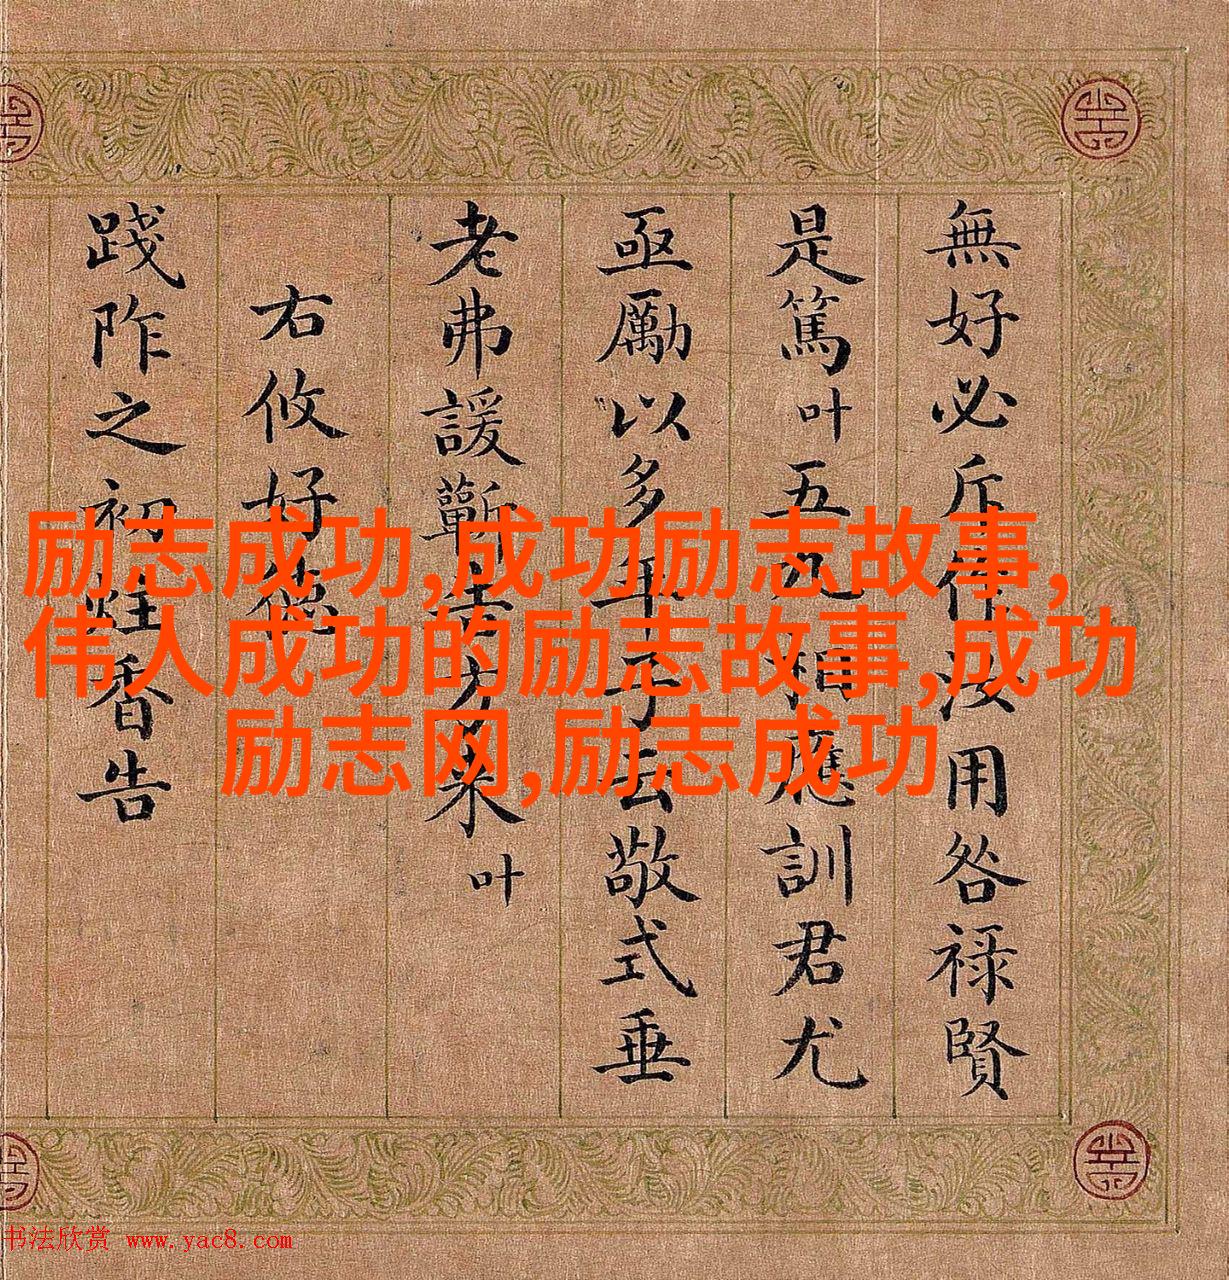 無好必斥作汝用咎祿賢
是篤叶五九相應訓君尤
亟勵以多年予敬式垂
老弗諼蘄告方來叶
右攸好德
踐阼之初炷香告
励志成功,成功励志故事,
伟人成功的励志故事,成功
励志网,励志成功
书法欣赏 www.yac8.com